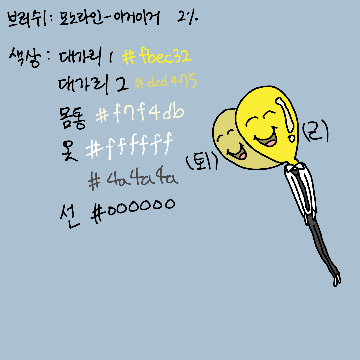 브러쉬: 모노라인-이거이거 2%
색상: 대가리1 #fbec32
대가리2 #dcd475
몸통 #f7f4db
옷 #ffffff
#4a4a4a
선 #000000
(퇴) (근)